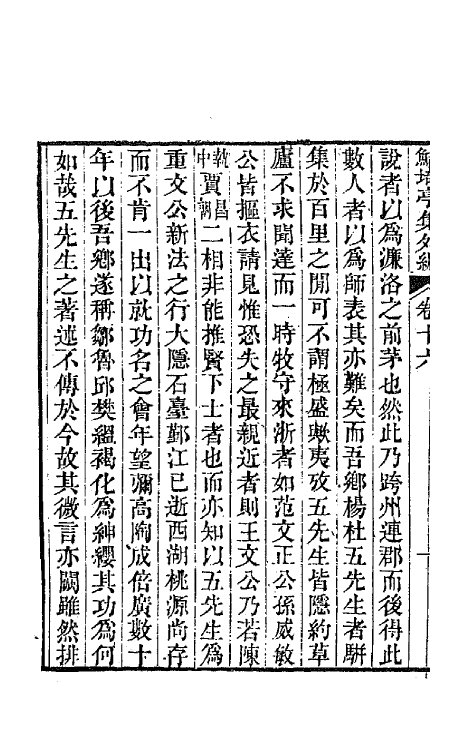 鮚埼亭集外編 卷十六
說者以爲濂洛之前茅也然此乃跨州連郡而後得此
數人者以爲師表其亦難矣而吾鄉楊杜五先生者駢
集於百里之閒可不謂極盛歟夷攷五先生皆隱約草
廬不求聞達而一時牧守來浙者如范文正公孫威敏
公皆摳衣請見惟恐失之最親近者則王文公乃若陳
執中賈昌朝二相非能推賢下士者也而亦知以五先生爲
重文公新法之行大隱石臺鄞江已逝西湖桃源尚存
而不肯一出以就功名之會年望彌高陶成倍廣數十
年以後吾鄉遂稱鄒魯邱樊縕褐化爲紳纓其功爲何
如哉五先生之著述不傳於今故其微言亦闕雖然排